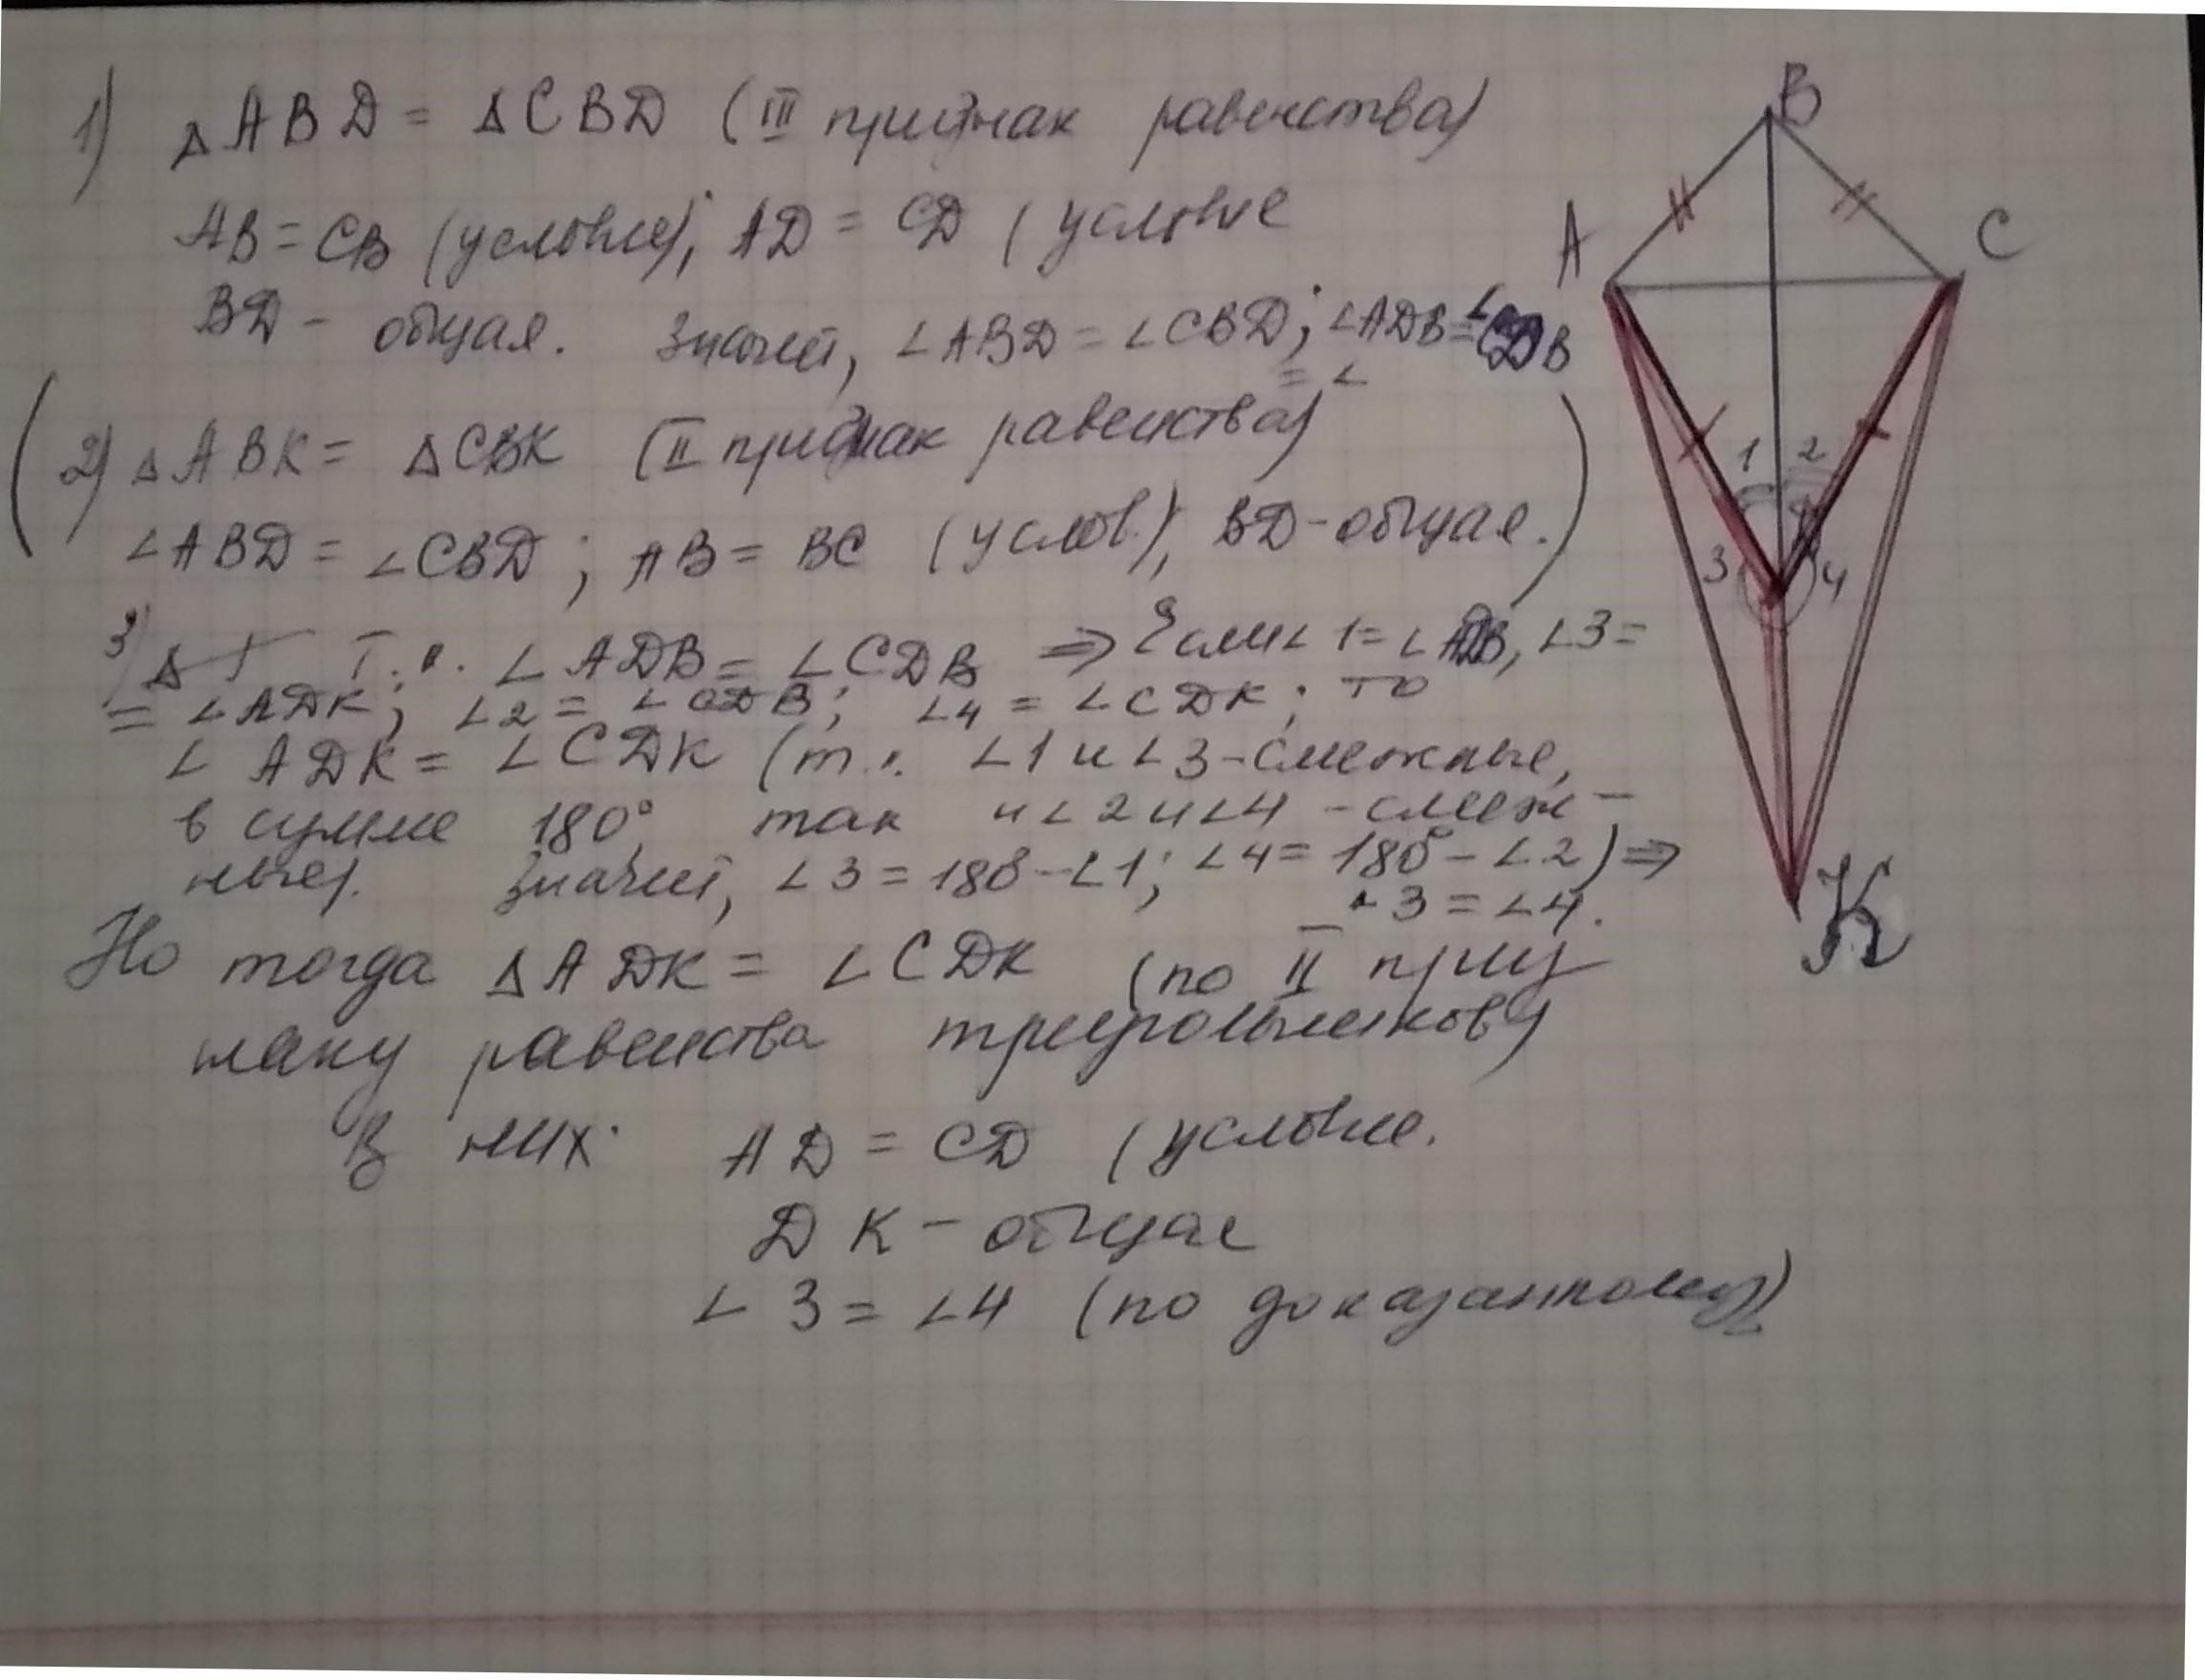 1) △ABD = △CBD (III признак равенства)
AB = CB (условие); AD = CD (условие
BD - общая. Значит, ∠ABD = ∠CBD; ∠ADB = ∠CDB
= ∠
(2) △ABK = △CBK (II признак равенства)
∠ABD = ∠CBD; AB = BC (услов.), BD - общая.)
3) △ Т.к. ∠ADB = ∠CDB ⇒ Если ∠1 = ∠ADB, ∠3 =
= ∠ADK; ∠2 = ∠CDB; ∠4 = ∠CDK; то
∠ADK = ∠CDK (т.к. ∠1 и ∠3 - смежные,
в сумме 180°, так и ∠2 и ∠4 - смеж-
ные). Значит, ∠3 = 180° - ∠1; ∠4 = 180° - ∠2) ⇒
∠3 = ∠4.
Но тогда △ADK = ∠CDK (по II приз
наку равенства треугольников)
В них: AD = CD (условие.
DK - общая
∠3 = ∠4 (по доказанному)
B
A
C
1 2
3 4
K